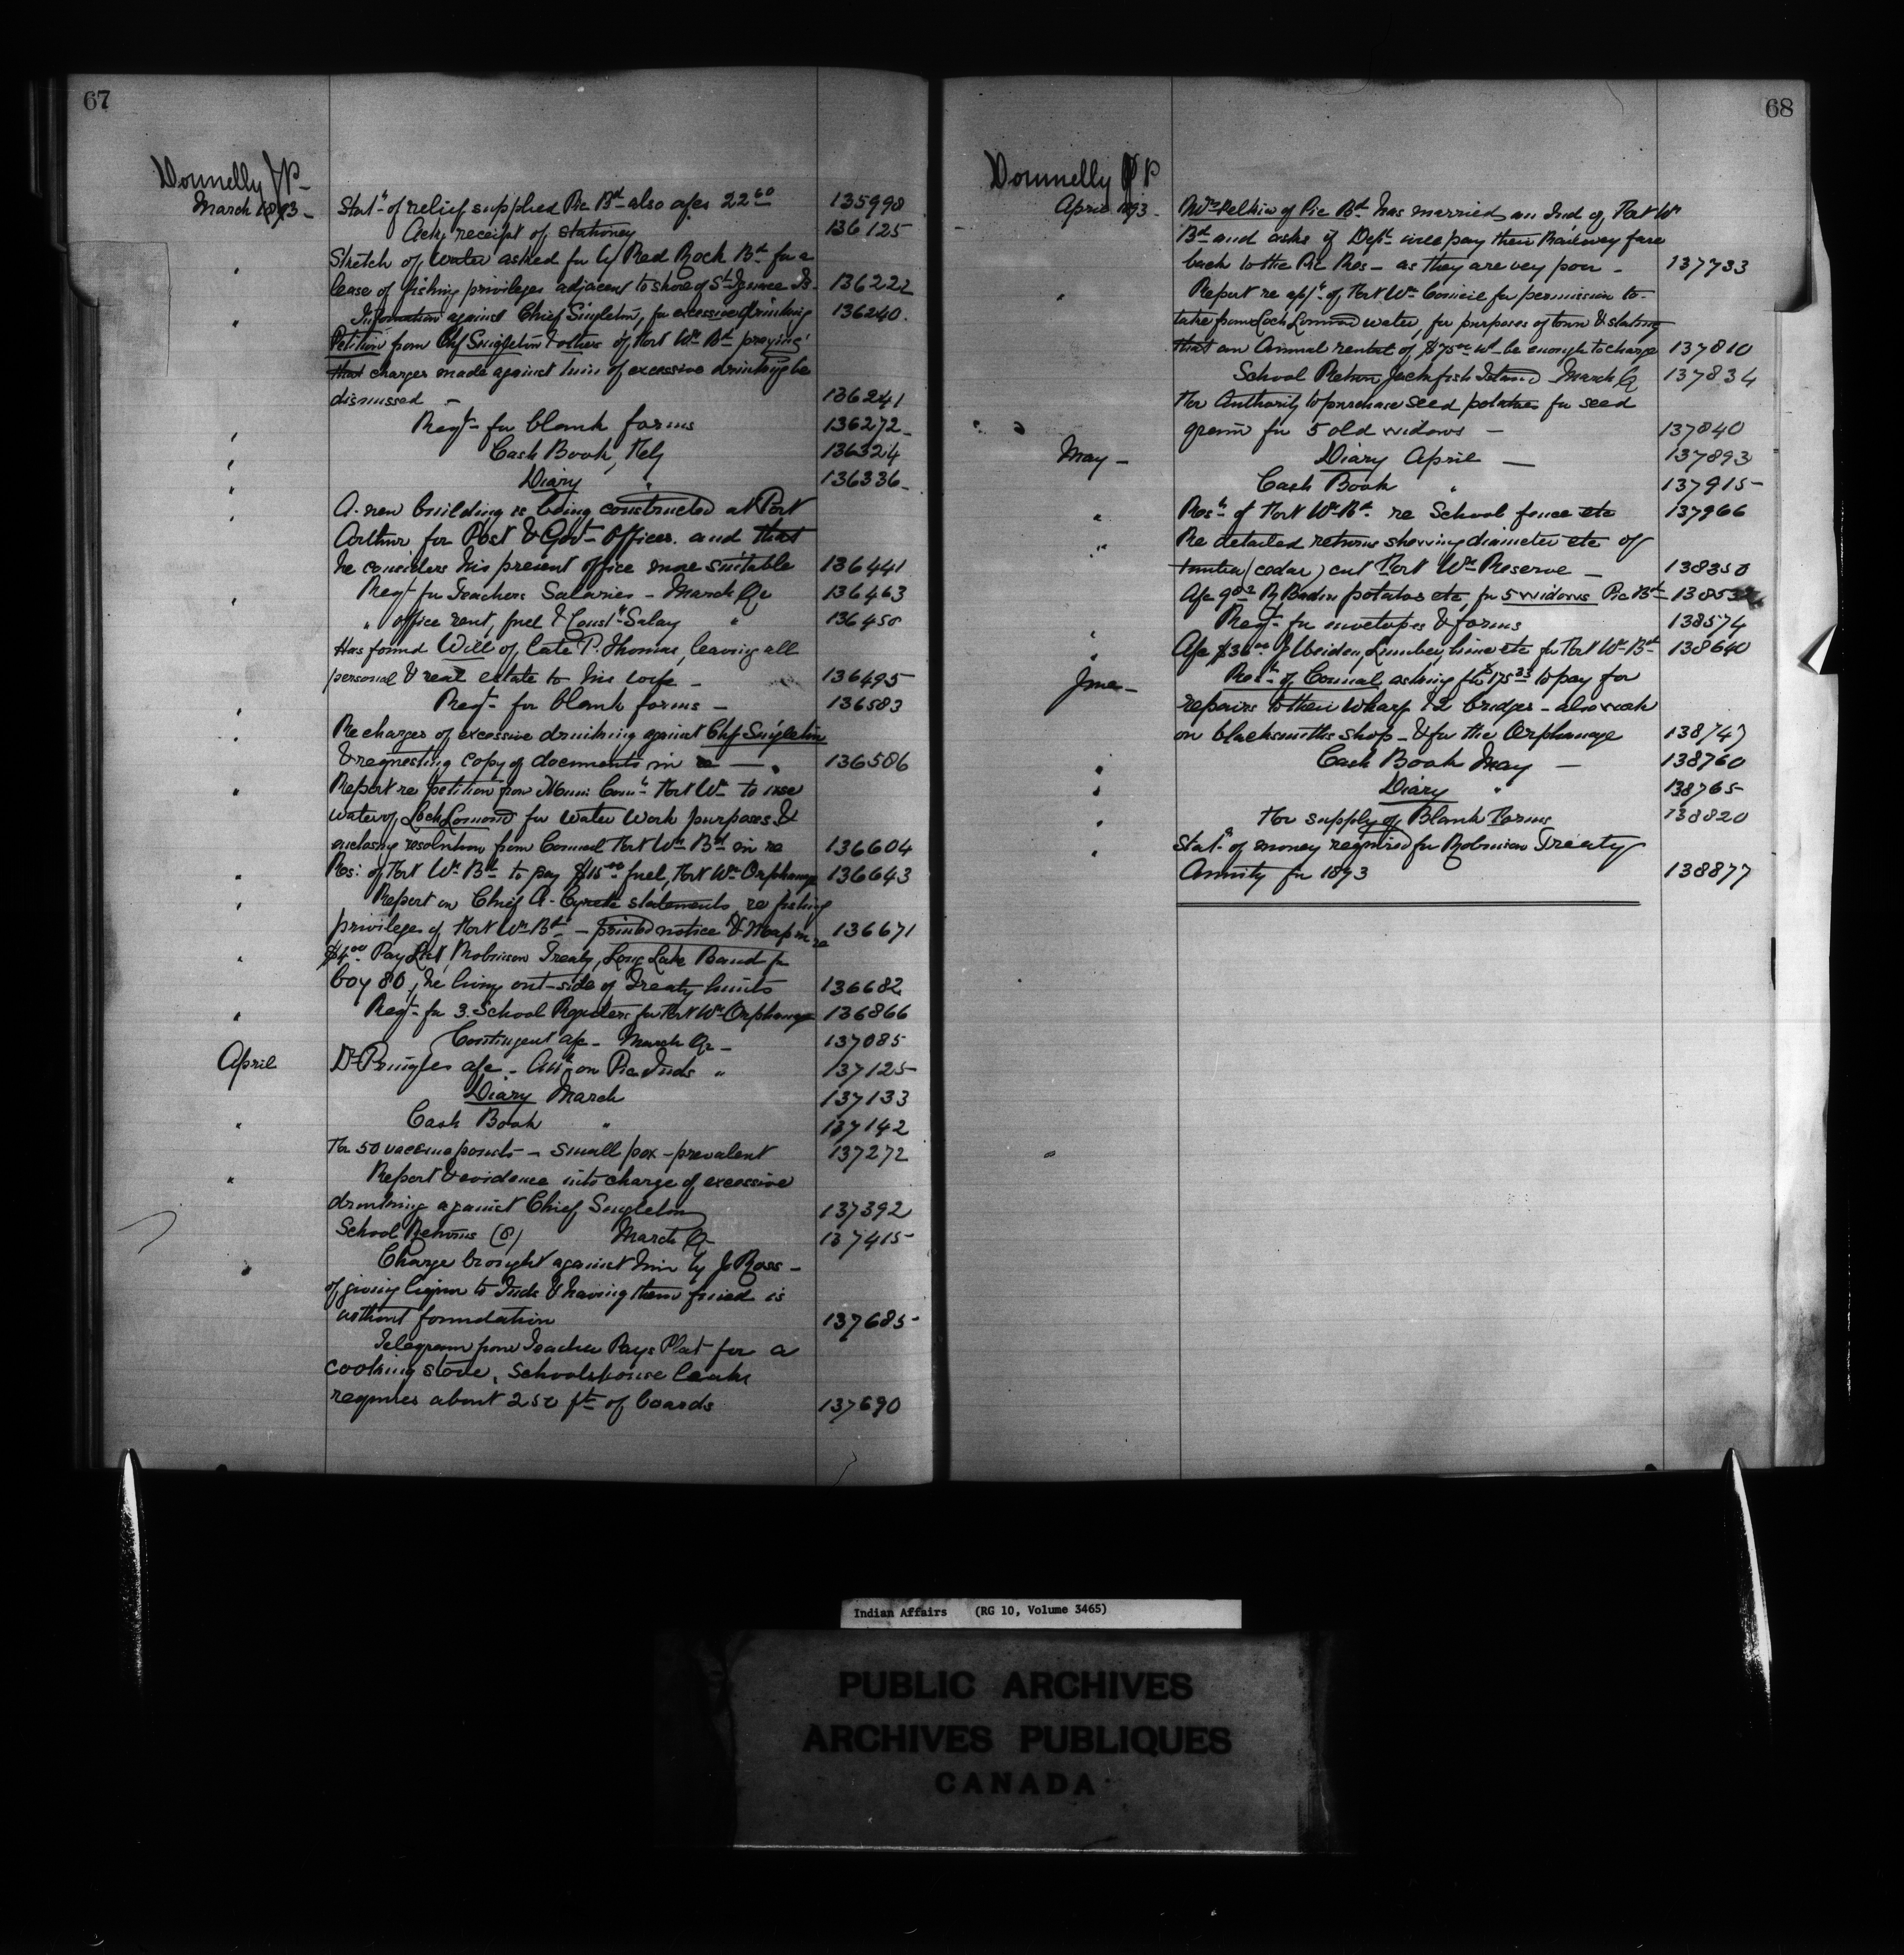 67
Donnelly J P -
March 1893 - Stat.n of relief supplied Pic Bd also a/cs 22.60 135998
Ack receipt of stationey 136125
" Stretch of water asked for by Red Rock Bd for a
lease of fishing privileges adjacent to shore of St Ignace Is. 136222
" Information against Chief Singleton, for excessive drinking 136240.
Petition from Chf Singleton & others of Fort Wm Bd praying
that charges made against him of excessive drinking be
dismissed - 136241
" Reqt for blank forms 136272-
" Cash Book, Feby 136324
" Diary " 136336-
" A new building is being constructed at Port
Arthur for Post & Govt Offices. and that
he considers his present office more suitable 136441
" Reqt for Teachers Salaries - March Qr 136463
" office rent, fuel & Const Salay " 136450
Has found Will of late P. Thomas, leaving all
personal & real estate to his wife - 136495
" Reqt for blank forms - 136583
" Re charges of excessive drinking against Chf Singleton
& requesting copy of documents in re - 136586
" Report re petition from Muni: Coun: Fort Wm to use
water of Loch Lomond for water work purposes &
enclosing resolution from Council Fort Wm Bd in re 136604
" Res: of Fort Wm Bd to pay $15.00 fuel, Fort Wm Orphanage 136643
" Report on Chief A. statements re fishing
privileges of Fort Wm Bd - printed notice & Map in re 136671
" $4.00 Pay List, Robinson Treaty, Long Lake Band for
boy 80, he living out-side of Treaty limits 136682
" Reqt for 3. School Registers for Fort Wm Orphanage 136866
Contingent a/c - March Qr - 137085
April Dr Pringles a/c - on Pic Inds " 137125
Diary March 137133
" Cash Book " 137142
For 50 vaccine points - small pox - prevalent 137272
" Report & evidence into charge of excessive
drinking against Chief Singleton 137392
School Returns (8) March Qr 137415
" Charge brought against him by J. Ross -
of giving liquor to Inds & having them fined is
without foundation 137685
Telegram from Teacher Pays Plat for a
cooking stove, Schoolhouse leaks
requires about 250 ft of boards 137690
68
Donnelly J P
April 1893 - of Pic Bd has married an Ind of Fort Wm
Bd and asks if Dept will pay their Railway fare
back to the Pic Res - as they are very poor - 137733
" Report re appn of Fort Wm Council for permission to
take from Loch Lomond water, for purposes of town & stating
that an Annual rental of $75.00 wd be enough to charge 137810
School Return Jackfish Island March Q 137834
For Authority to purchase seed potatoes for seed
grain for 5 old widows - 137840
May - Diary April - 137893
Cash Book " 137915
" Resn of Fort Wm Bd re School fence etc 137966
" Re detailed returns showing diameter etc of
timber (cedar) cut Fort Wm Reserve - 138350
A/c potatos etc, for 5 widows Pic Bd
" Reqt for envelopes & forms 138574
" A/c Lumber, lime etc for Fort Wm Bd 138640
June - Resn of Council, asking for $175.33 to pay for
repairs to their Wharf & 2 bridges - also work
on blacksmiths shop - & for the Orphanage 138747
" Cash Book May - 138760
" Diary " 138765
" For supply of Blank Forms 138820
" Stat.n of money required for Robinson Treaty
Annuity for 1893 138877
Indian Affairs (RG 10, Volume 3465)
PUBLIC ARCHIVES
ARCHIVES PUBLIQUES
CANADA